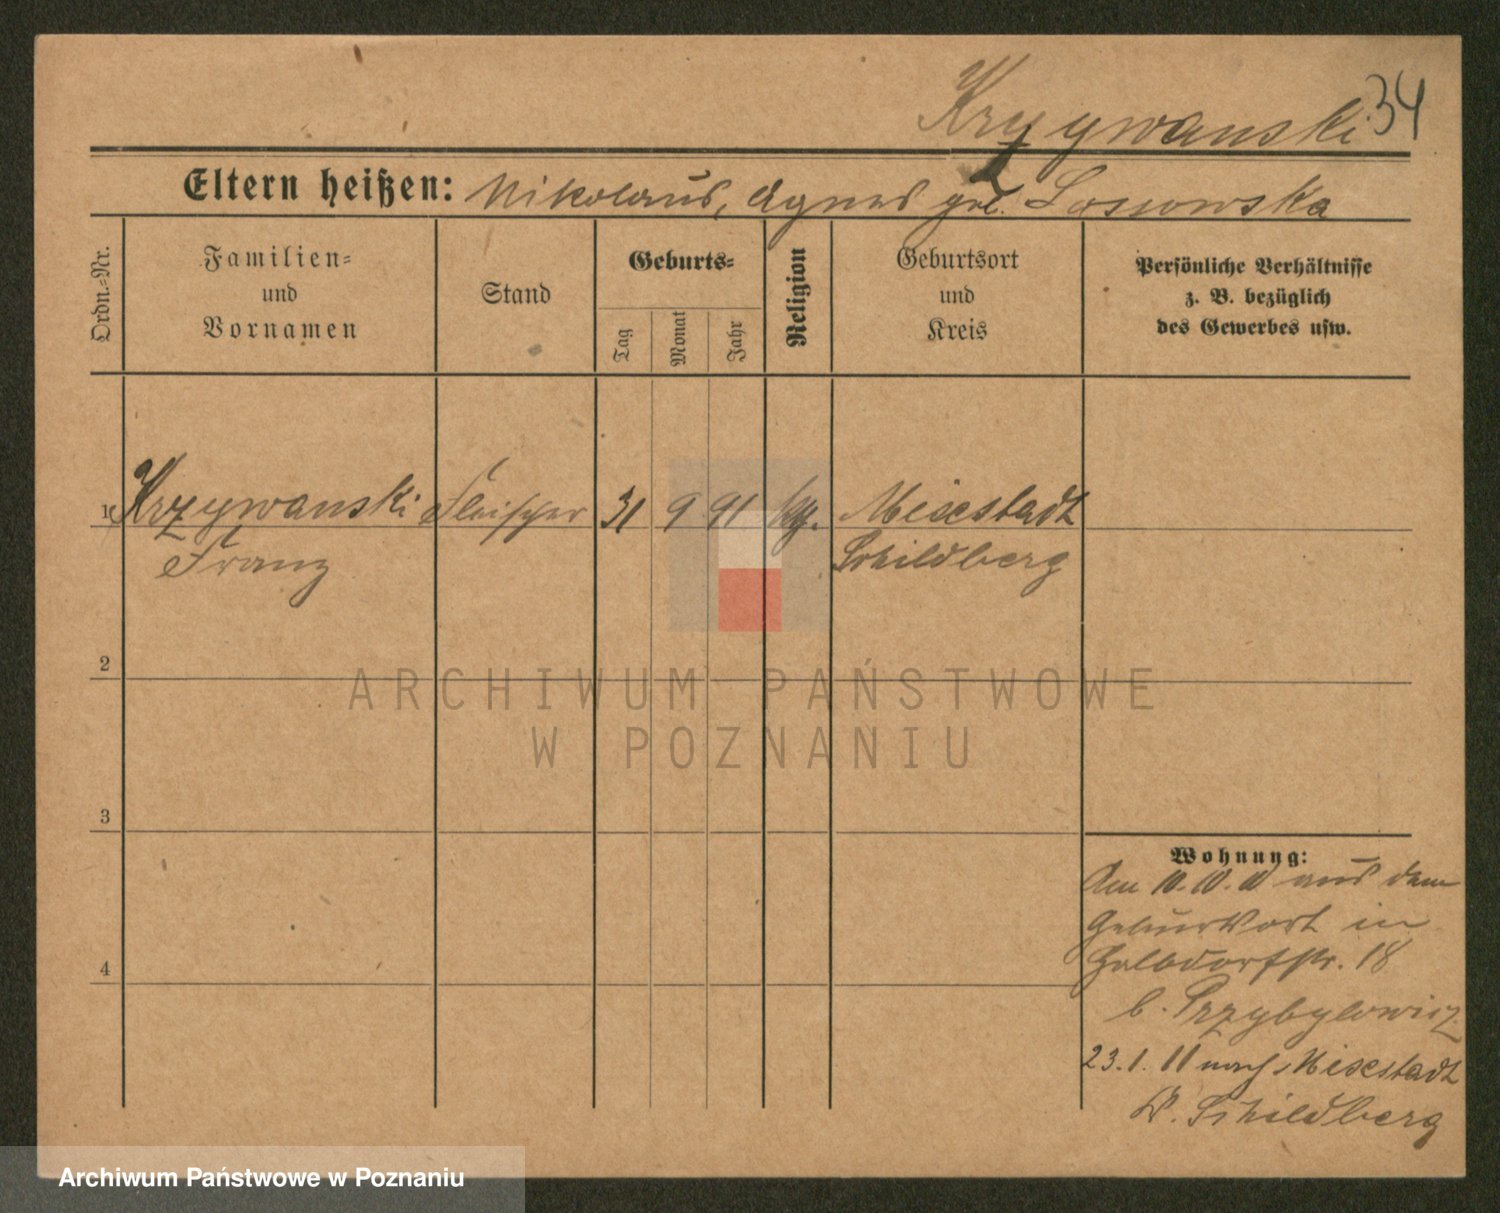 Krzywanski 34
Eltern heißen: Nikolaus, Agnes geb. Lossowska
Ordn.-Nr.
Familien-
und
Vornamen
Stand
Geburts-
Tag
Monat
Jahr
Religion
Geburtsort
und
Kreis
Persönliche Verhältnisse
z. B. bezüglich
des Gewerbes usw.
1 Krzywanski Fleischer 31 9 91 Mixstadt
Franz Schildberg
2
3
4
Wohnung:
Am 10.10.10 aus dem
Geburtsort in
Halbdorfstr. 18
b. Przybylowicz
23.1.11 nach Mixstadt
Kr. Schildberg
ARCHIWUM PAŃSTWOWE
W POZNANIU
Archiwum Państwowe w Poznaniu